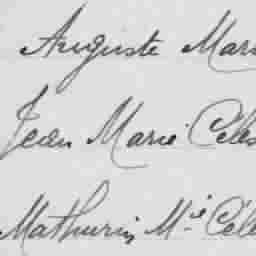 Auguste Mar
Jean Marie Céles
Mathurin M.ie Céle